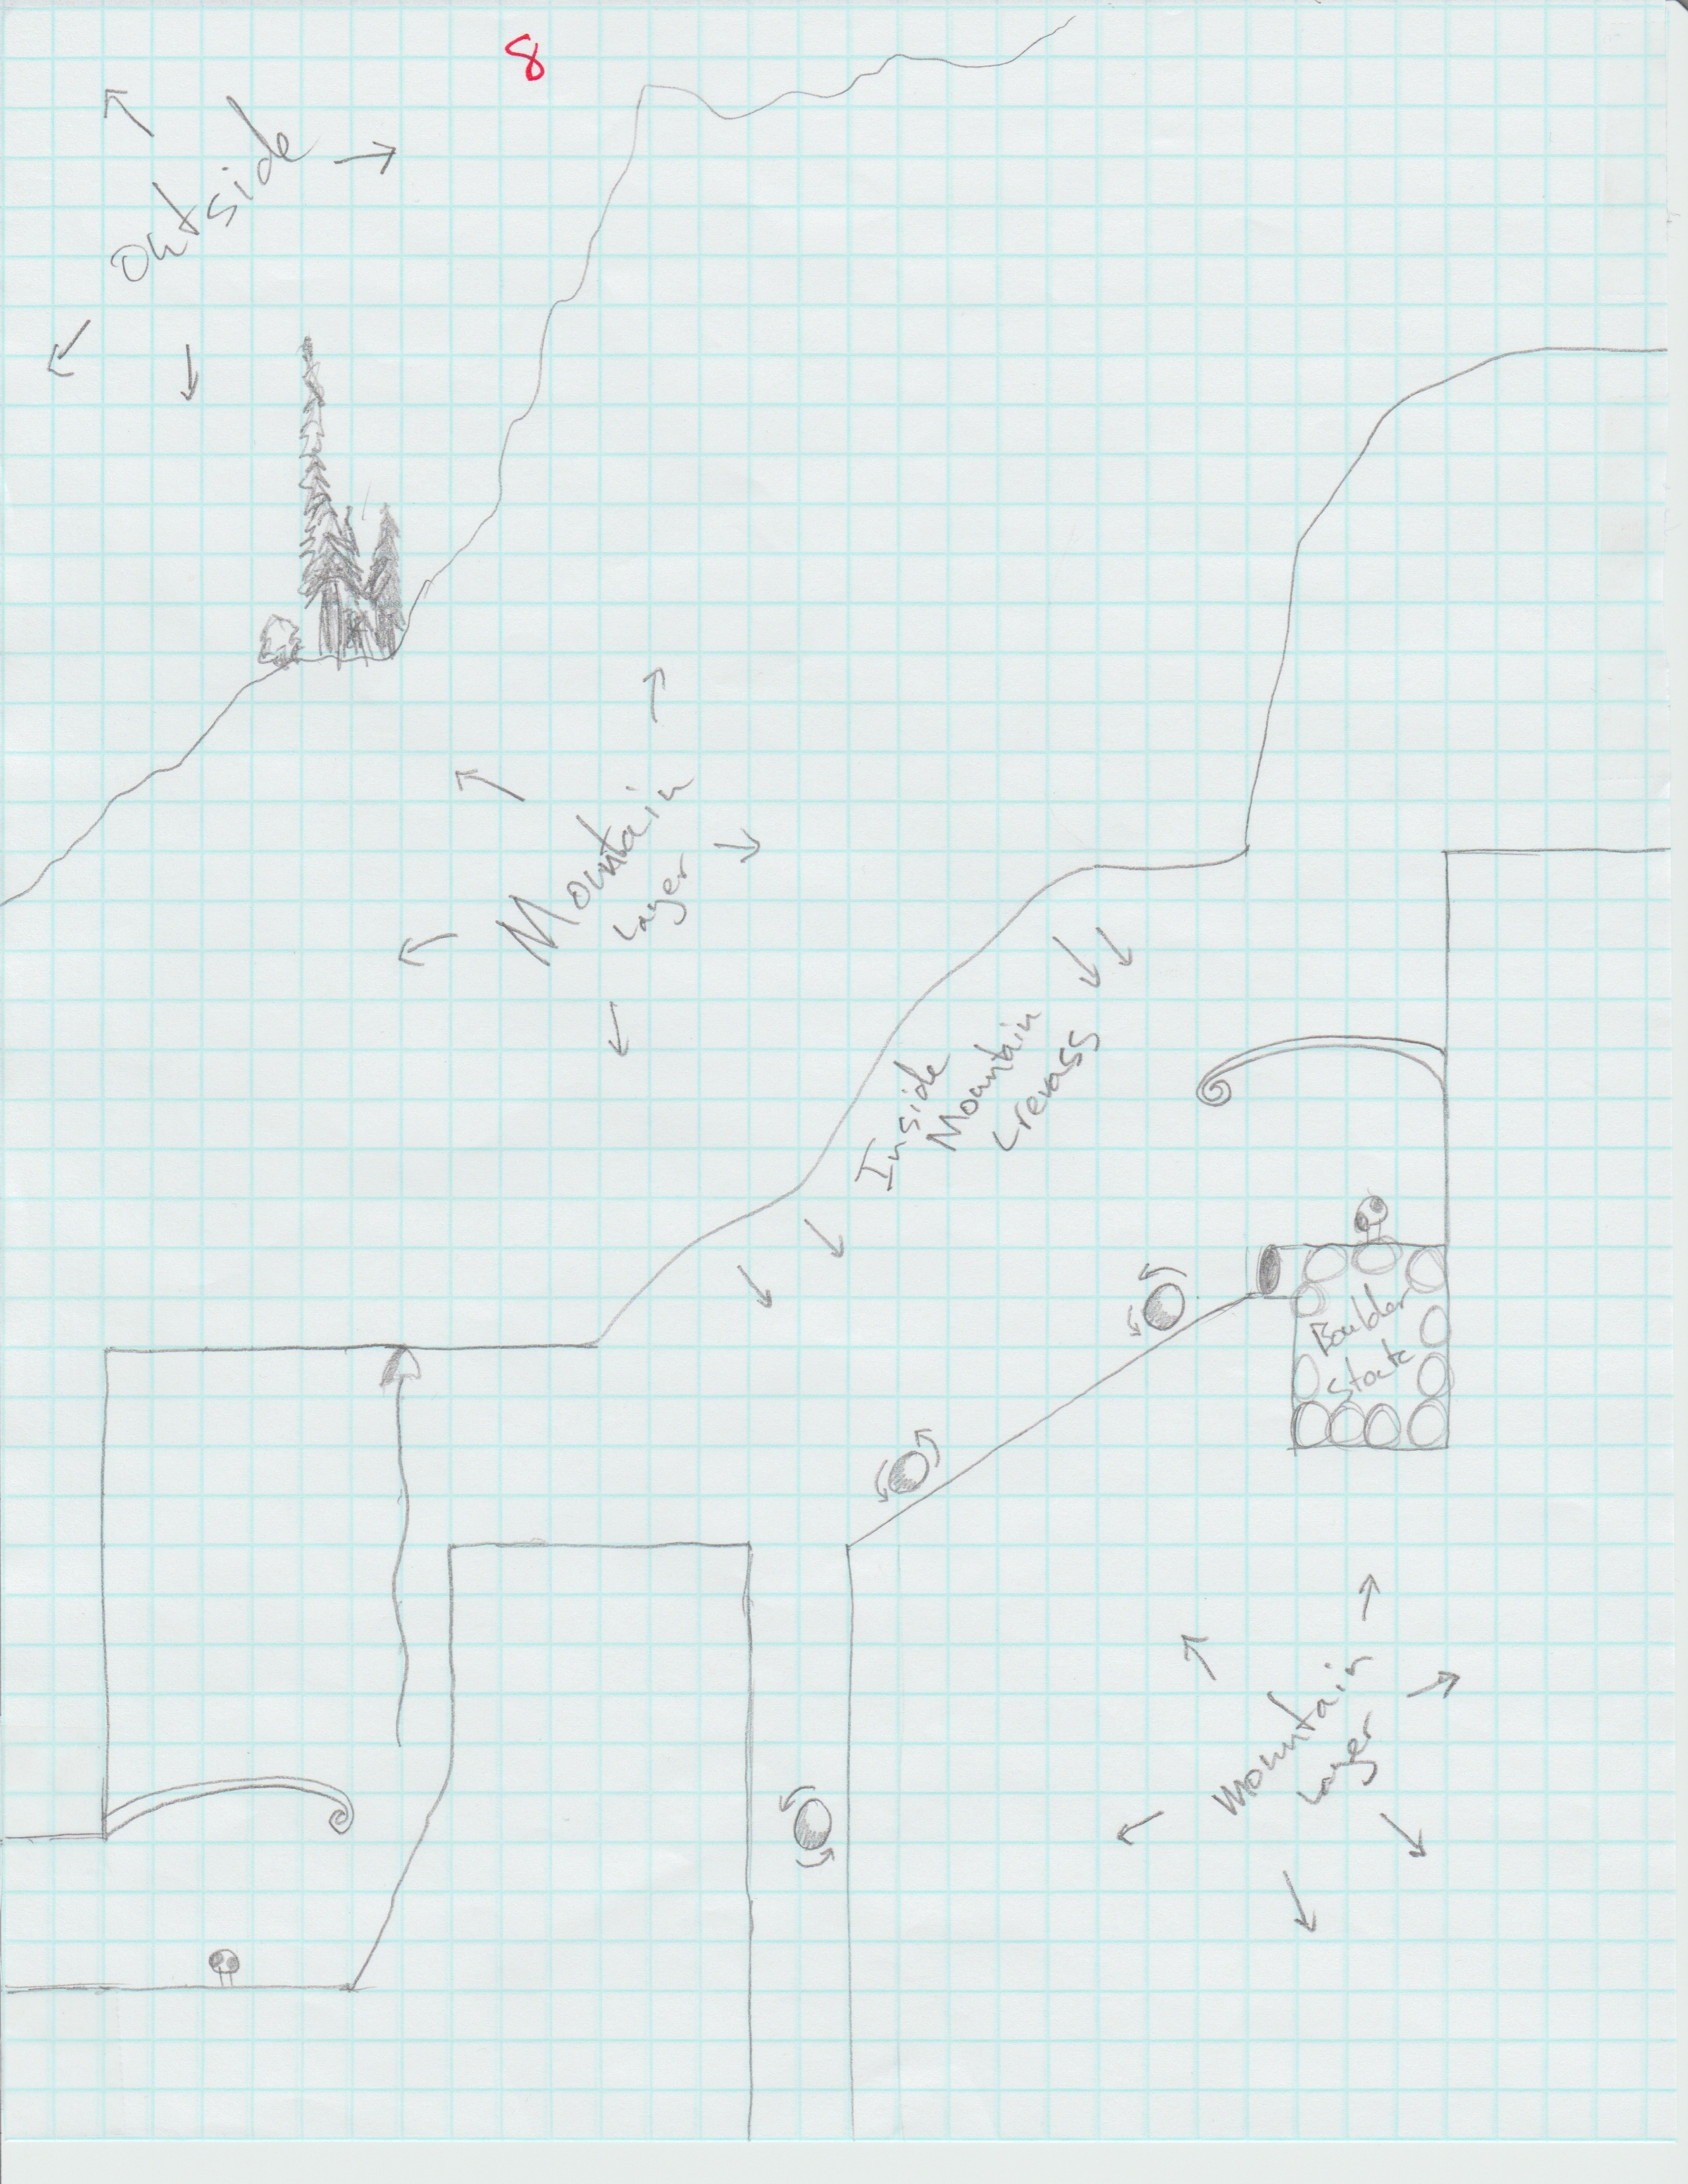 8
Outside
Mountain
Layer
Inside
Mountain
Crevass
Boulder
Stock
Mountain
Layer